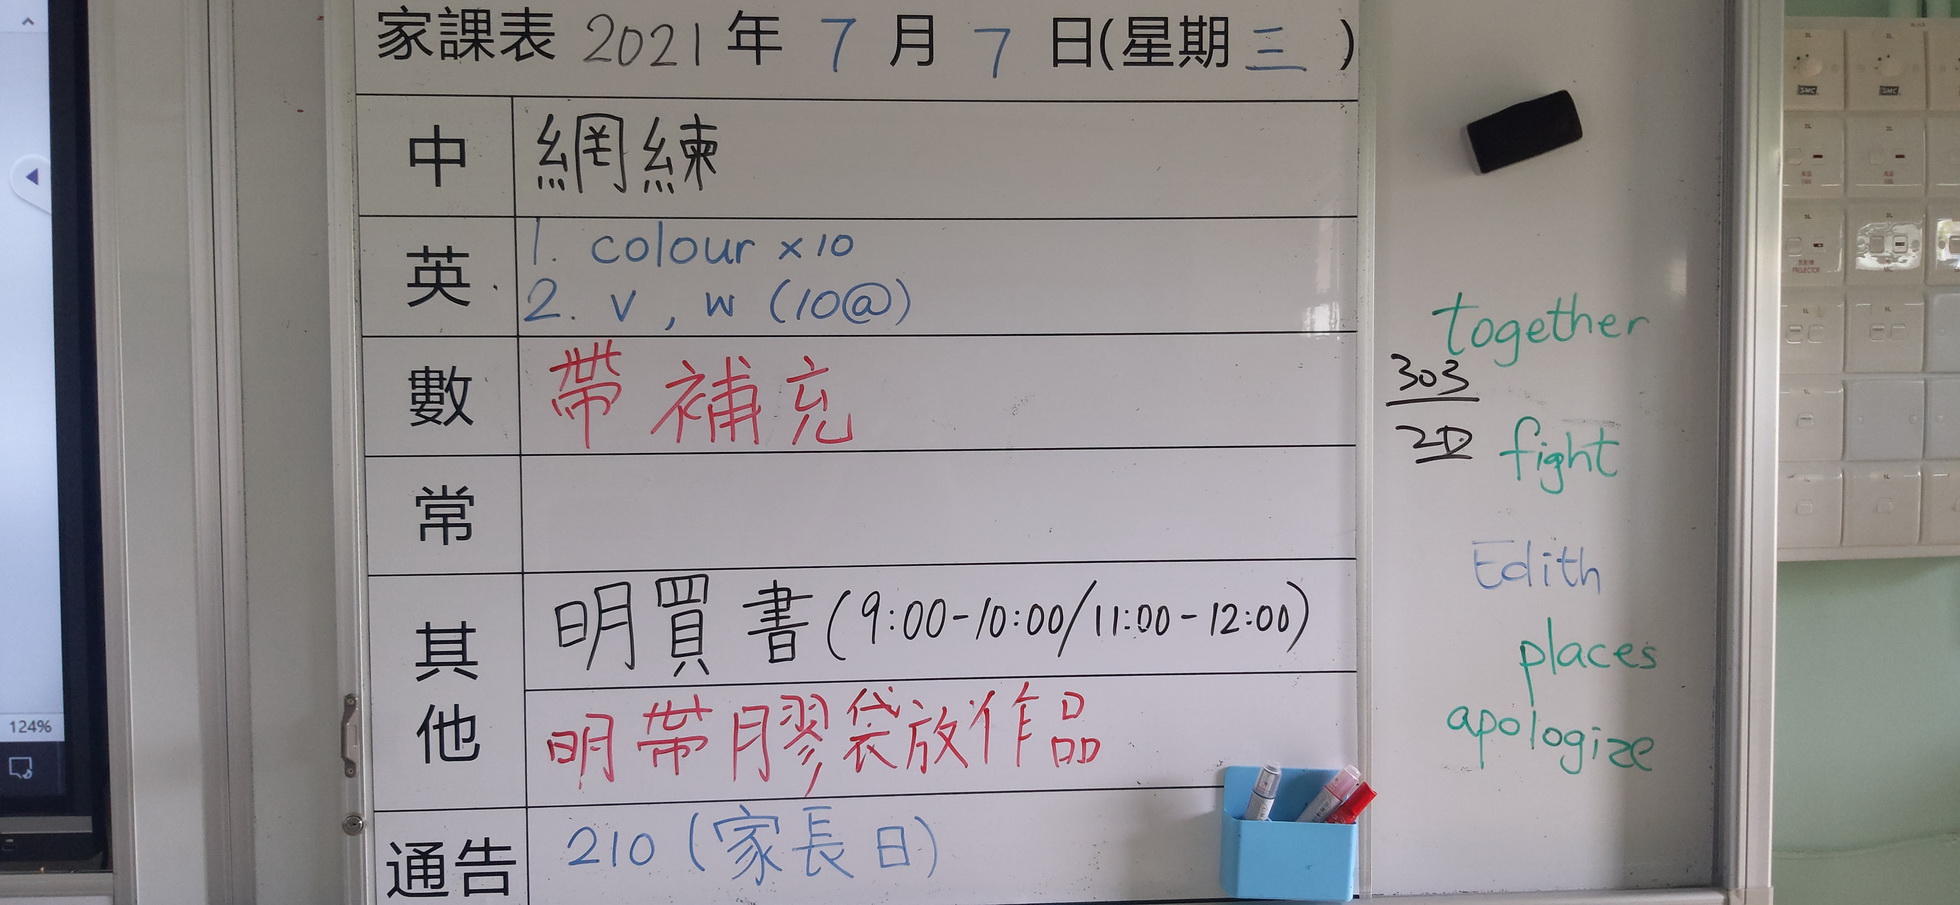 家課表 2021 年 7 月 7 日(星期三)
中 網練
英 1. colour x10
2. v , w (10@)
數 帶補充
常
其他 明買書(9:00-10:00/11:00-12:00)
明帶膠袋放作品
通告 210 (家長日)
together
303
2D
fight
Edith
places
apologize
124%
SMC
SMC
PROJECTOR